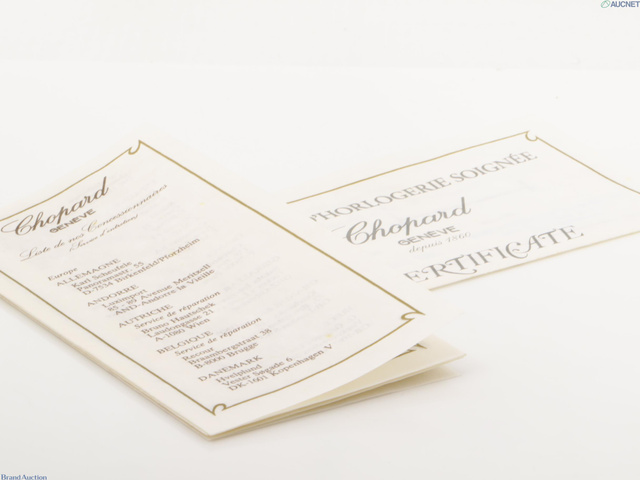 AUCNET
Chopard
GENÈVE
Liste de nos Concessionnaires
Europe
ALLEMAGNE
Karl Scheufele
Panoramastr. 55
D-7534 Birkenfeld/Pforzheim
ANDORRE
Luximport
85 - 89 Avenue Meritxell
AND-Andorre la Vieille
AUTRICHE
Service de réparation
Bruno Hautschek
Landongasse 21
A-1080 Wien
BELGIQUE
Service de réparation
Recour
38
B-8000 Brugge
DANEMARK
Hvelplund
Vester Søgade 6
DK-1601 Kopenhagen V
L'HORLOGERIE SOIGNÉE
Chopard
GENÈVE
depuis 1860
ERTIFICATE
Brand Auction